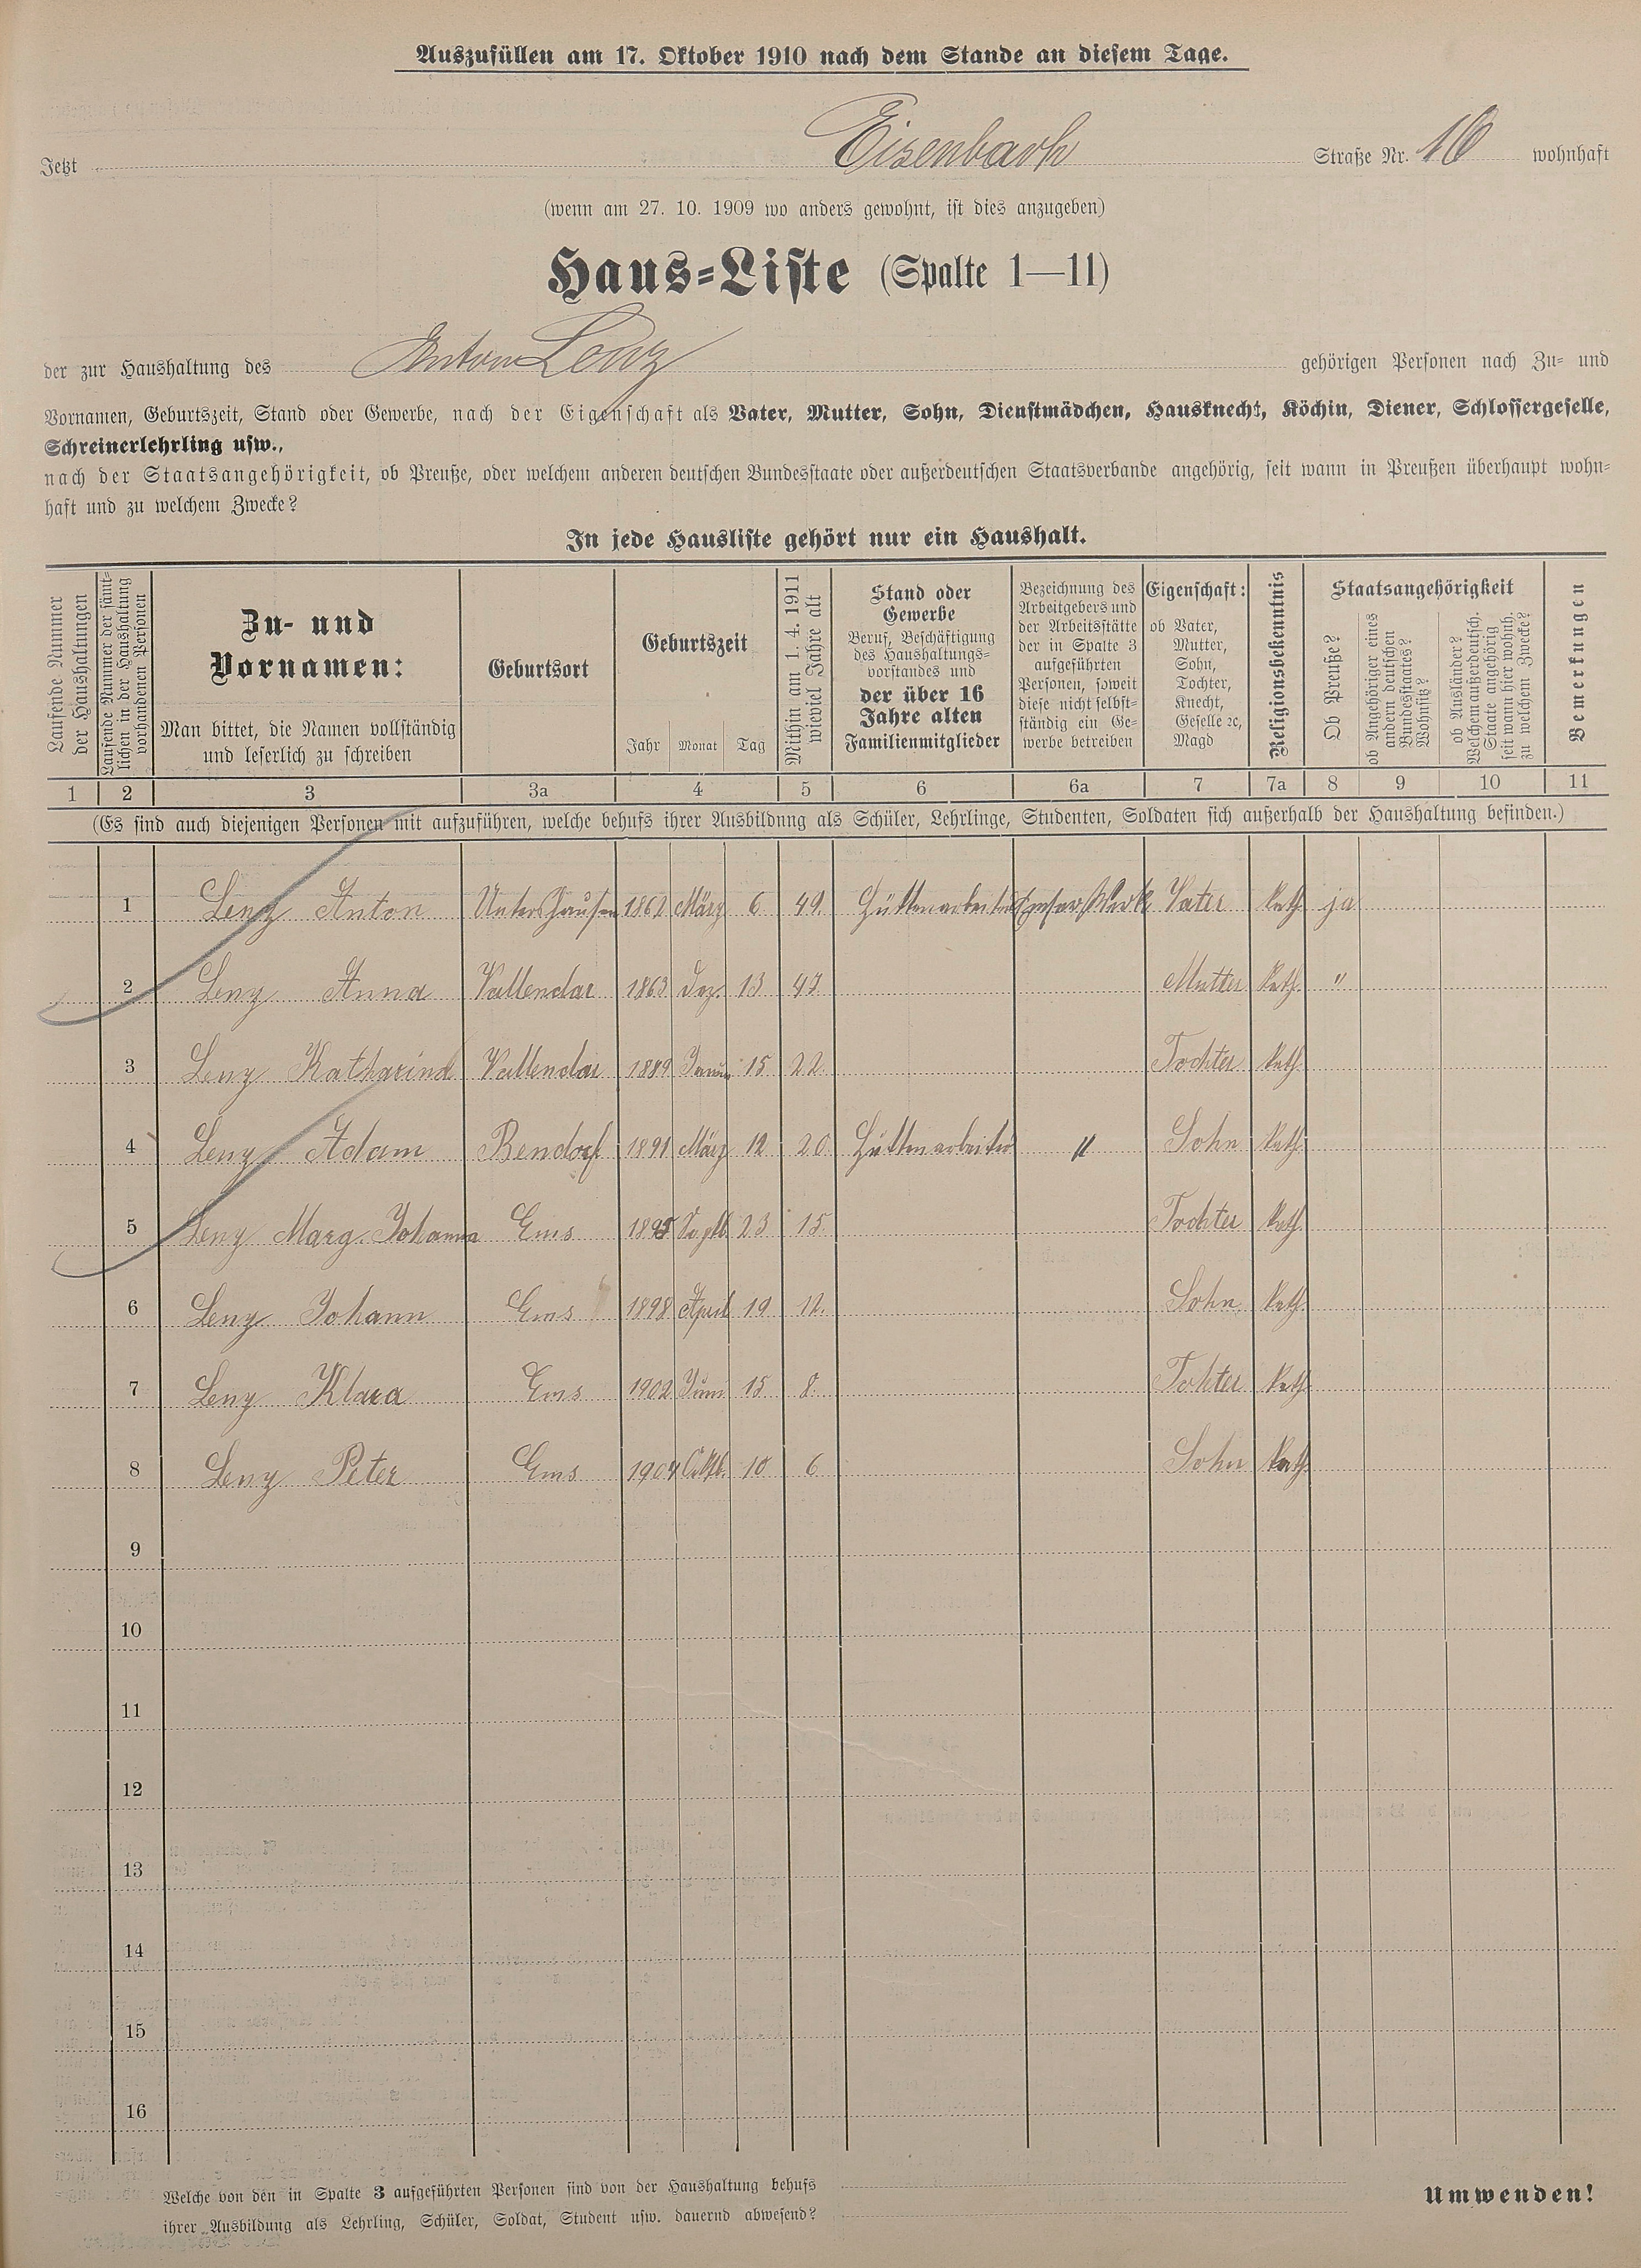 Auszufüllen am 17. Oktober 1910 nach dem Stande an diesem Tage.
Jetzt Eisenbach Straße Nr. 16 wohnhaft
(wenn am 27. 10. 1909 wo anders gewohnt, ist dies anzugeben)
Haus-Liste (Spalte 1—11)
der zur Haushaltung des Anton Lenz gehörigen Personen nach Zu- und
Vornamen, Geburtszeit, Stand oder Gewerbe, nach der Eigenschaft als Vater, Mutter, Sohn, Dienstmädchen, Hausknecht, Köchin, Diener, Schlossergeselle,
Schreinerlehrling usw.,
nach der Staatsangehörigkeit, ob Preuße, oder welchem anderen deutschen Bundesstaate oder außerdeutschen Staatsverbande angehörig, seit wann in Preußen überhaupt wohn-
haft und zu welchem Zwecke?
In jede Hausliste gehört nur ein Haushalt.
Laufende Nummer
der Haushaltungen
Laufende Nummer der sämt-
lichen in der Haushaltung
vorhandenen Personen
Zu- und
Vornamen:
Man bittet, die Namen vollständig
und leserlich zu schreiben
Geburtsort
Geburtszeit
Jahr Monat Tag
Mithin am 1. 4. 1911
wieviel Jahre alt
Stand oder
Gewerbe
Beruf, Beschäftigung
des Haushaltungs-
vorstandes und
der über 16
Jahre alten
Familienmitglieder
Bezeichnung des
Arbeitgebers und
der Arbeitsstätte
der in Spalte 3
aufgeführten
Personen, soweit
diese nicht selbst-
ständig ein Ge-
werbe betreiben
Eigenschaft:
ob Vater,
Mutter,
Sohn,
Tochter,
Knecht,
Geselle ꝛc,
Magd
Religionsbekenntnis
Staatsangehörigkeit
Ob Preuße?
ob Angehöriger eines
andern deutschen
Bundesstaates?
Wohnsitz?
ob Ausländer?
Welchem außerdeutsch.
Staate angehörig
seit wann hier wohnh.
zu welchem Zwecke?
Bemerkungen
1 2 3 3a 4 5 6 6a 7 7a 8 9 10 11
(Es sind auch diejenigen Personen mit aufzuführen, welche behufs ihrer Ausbildung als Schüler, Lehrlinge, Studenten, Soldaten sich außerhalb der Haushaltung befinden.)
1 Lenz Anton Untershausen 1862 März 6 49 Hüttenarbeiter Emser Werk Vater Kath. ja
2 Lenz Anna Vallendar 1863 Dez. 13 47 Mutter Kath. "
3 Lenz Katharina Vallendar 1889 Januar 15 22 Tochter Kath.
4 Lenz Adam Bendorf 1891 März 12 20 Hüttenarbeiter " Sohn Kath.
5 Lenz Marg. Johanna Ems 1895 Septb. 23 15 Tochter Kath.
6 Lenz Johann Ems 1898 April 19 12. Sohn Kath.
7 Lenz Klara Ems 1902 Juni 15 8 Tohter Kath.
8 Lenz Peter Ems 1904 Oktb. 10 6 Sohn Kath.
9
10
11
12
13
14
15
16
Welche von den in Spalte 3 aufgeführten Personen sind von der Haushaltung behufs
ihrer Ausbildung als Lehrling, Schüler, Soldat, Student usw. dauernd abwesend?
Umwenden!